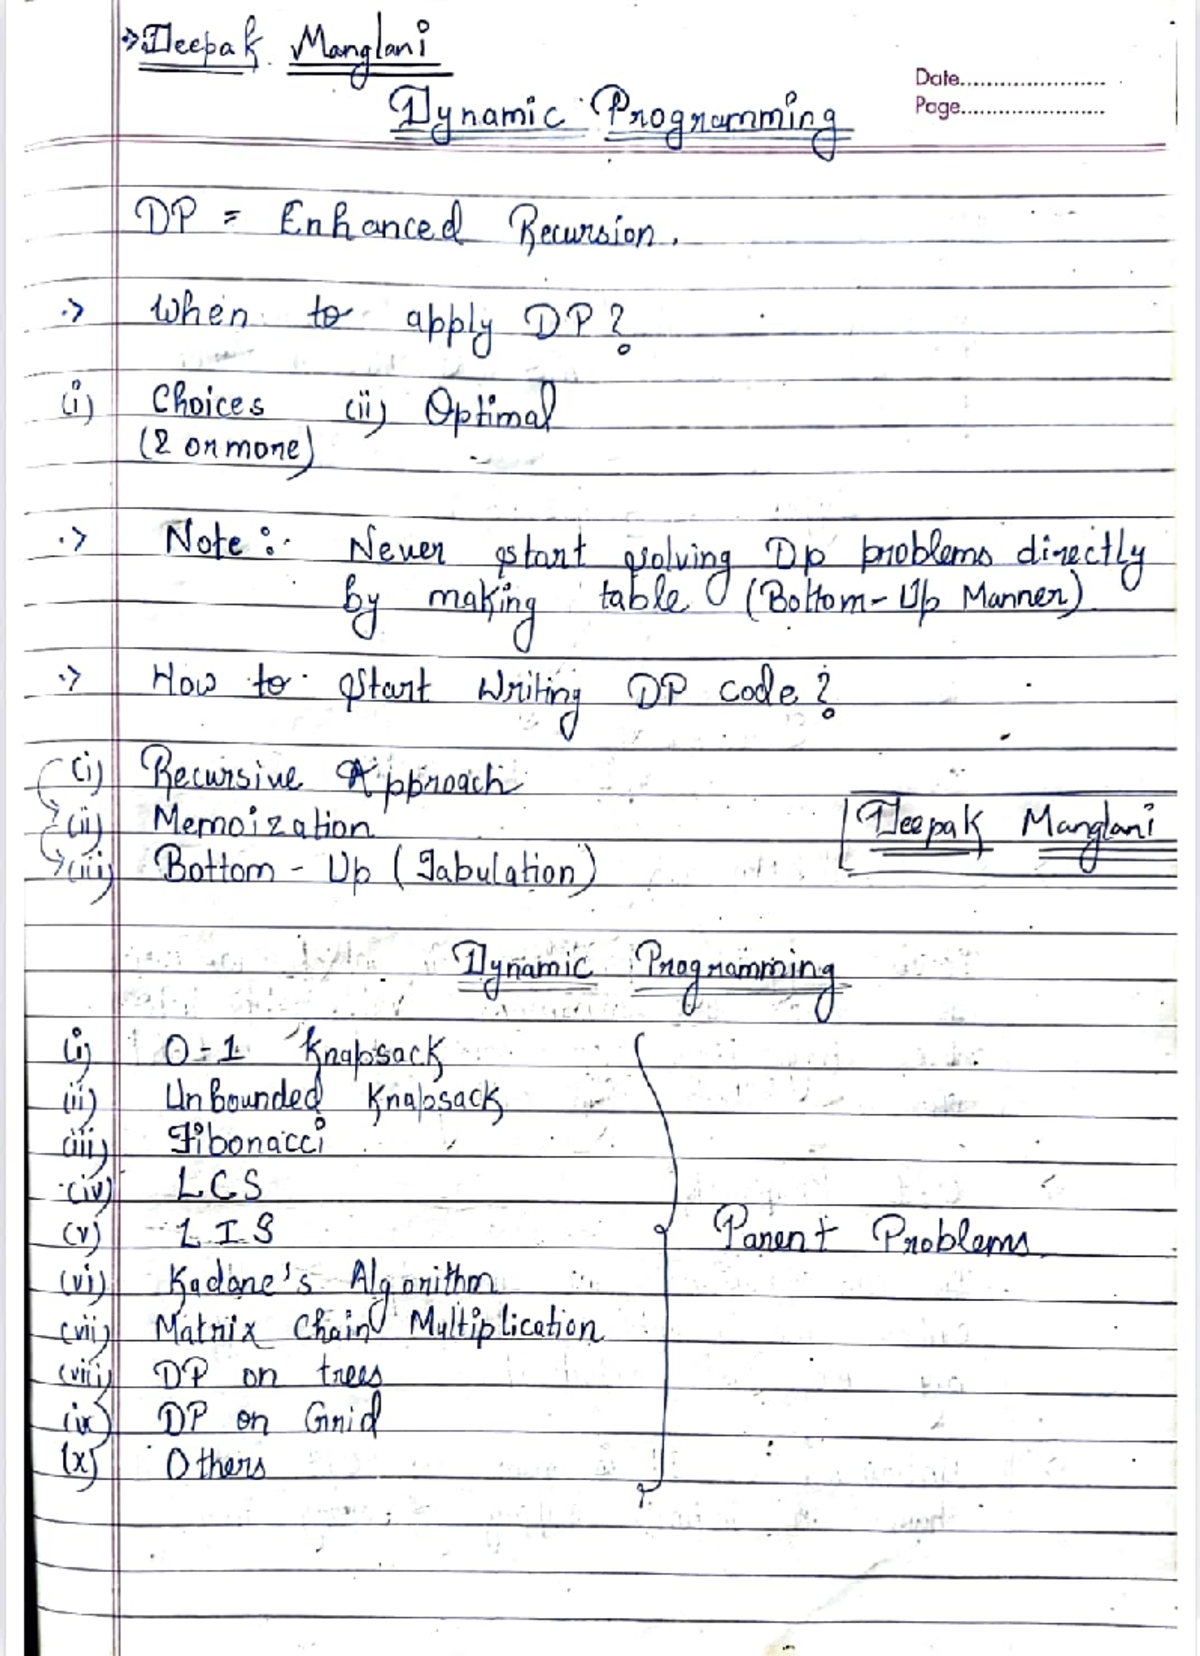 Deepak Manglani
Date.....................
Dynamic Programming
Page.....................
DP = Enhanced Recursion.
When to apply DP?
(i) Choices (ii) Optimal
(2 or more)
Note: Never start solving Dp problems directly
by making table (Bottom-Up Manner)
How to start Writing DP code?
(i) Recursive Approach
(ii) Memoization
Deepak Manglani
(iii) Bottom - Up (Tabulation)
Dynamic Programming
(i) 0-1 Knapsack
(ii) UnBounded Knapsack
(iii) Fibonacci
(iv) LCS
(v) LIS
Parent Problems
(vi) Kadane's Algorithm
(vii) Matrix Chain Multiplication
(viii) DP on trees
(ix) DP on Grid
(x) Others